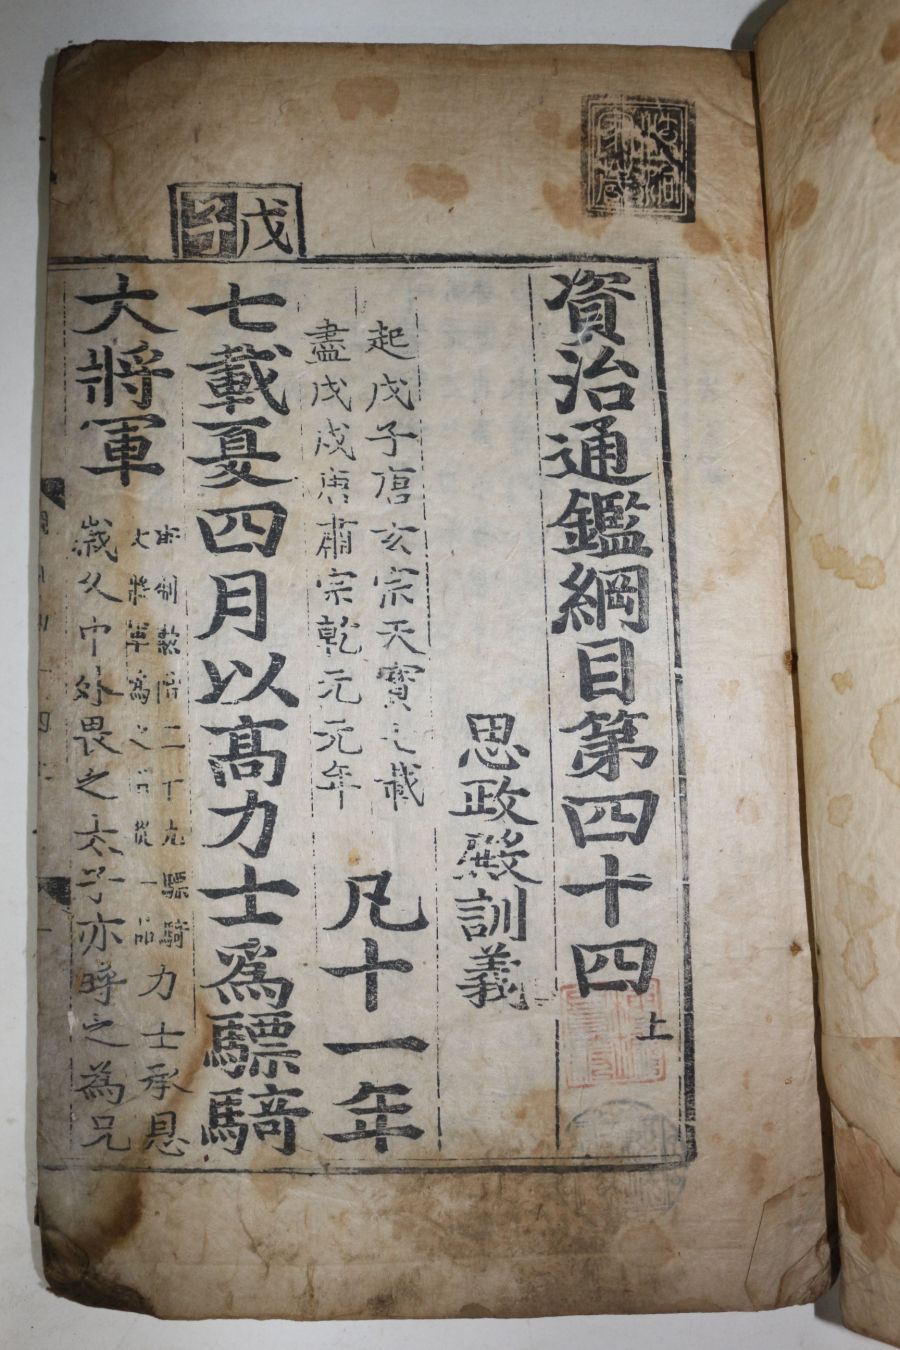 資治通鑑綱目第四十四上
思政殿訓義
起戊子唐玄宗天寶七載
盡戊戌唐肅宗乾元元年
凡十一年
戊子
七載夏四月以高力士為驃騎
大將軍
大將軍為之
驃騎
力士承恩
歲久中外畏之太子亦呼之為兄